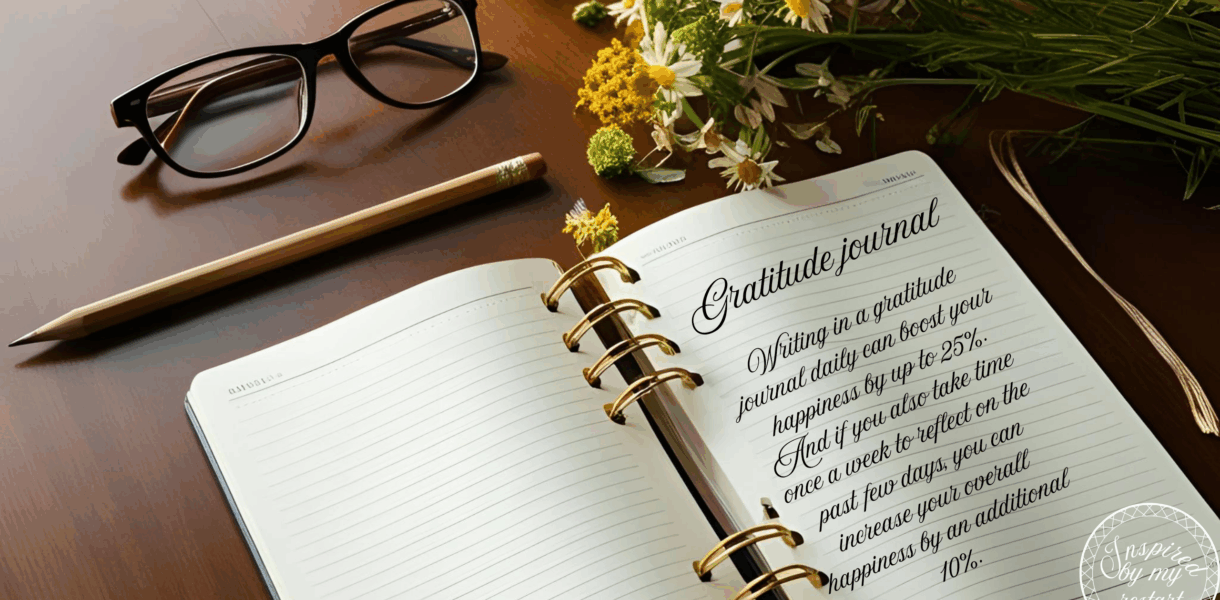 Gratitude journal
Writing in a gratitude
journal daily can boost your
happiness by up to 25%.
And if you also take time
once a week to reflect on the
past few days, you can
increase your overall
happiness by an additional
10%.
Inspired
by my
restart